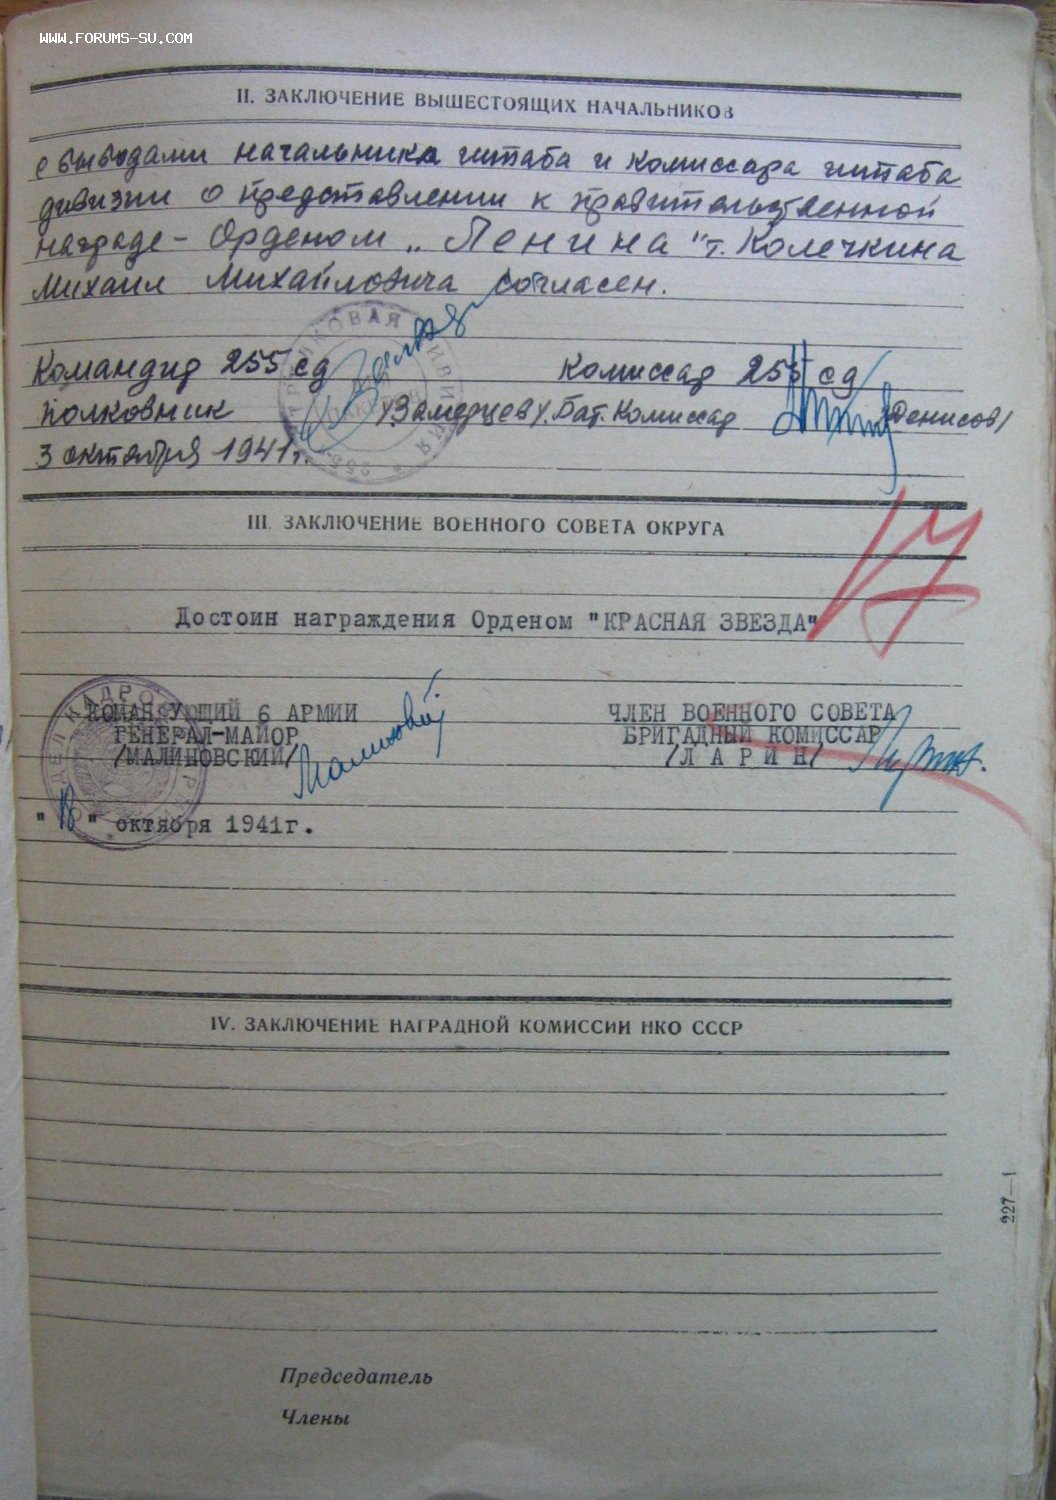 WWW.FORUMS-SU.COM
II. ЗАКЛЮЧЕНИЕ ВЫШЕСТОЯЩИХ НАЧАЛЬНИКОВ
с выводами начальника штаба и комиссара штаба
дивизии о представлении к правительственной
награде - Орденом „Ленина" т. Колечкина
Михаил Михайловича согласен.
Командир 255 сд Комиссар 255 сд
полковник /Замерцев/. Бат. Комиссар /Денисов/
3 октября 1941 г.
III. ЗАКЛЮЧЕНИЕ ВОЕННОГО СОВЕТА ОКРУГА
Достоин награждения Орденом "КРАСНАЯ ЗВЕЗДА"
КОМАНДУЮЩИЙ 6 АРМИИ ЧЛЕН ВОЕННОГО СОВЕТА
ГЕНЕРАЛ-МАЙОР БРИГАДНЫЙ КОМИССАР
/МАЛИНОВСКИЙ/ Малиновский /Л А Р И Н/ Ларин.
" " октября 1941г.
IV. ЗАКЛЮЧЕНИЕ НАГРАДНОЙ КОМИССИИ НКО СССР
227—1
Председатель
Члены